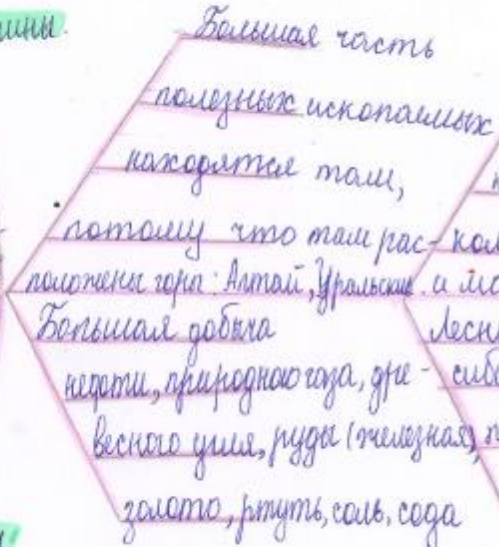 ины.
Большая часть
полезных ископаемых
находятся там,
потому что там рас-
положены горы: Алтай, Уральские.
Большая добыча
нефти, природного газа, дре-
весного угля, руды (железная),
золото, ртуть, соль, сода
кол
и мо
Лесн
сиб